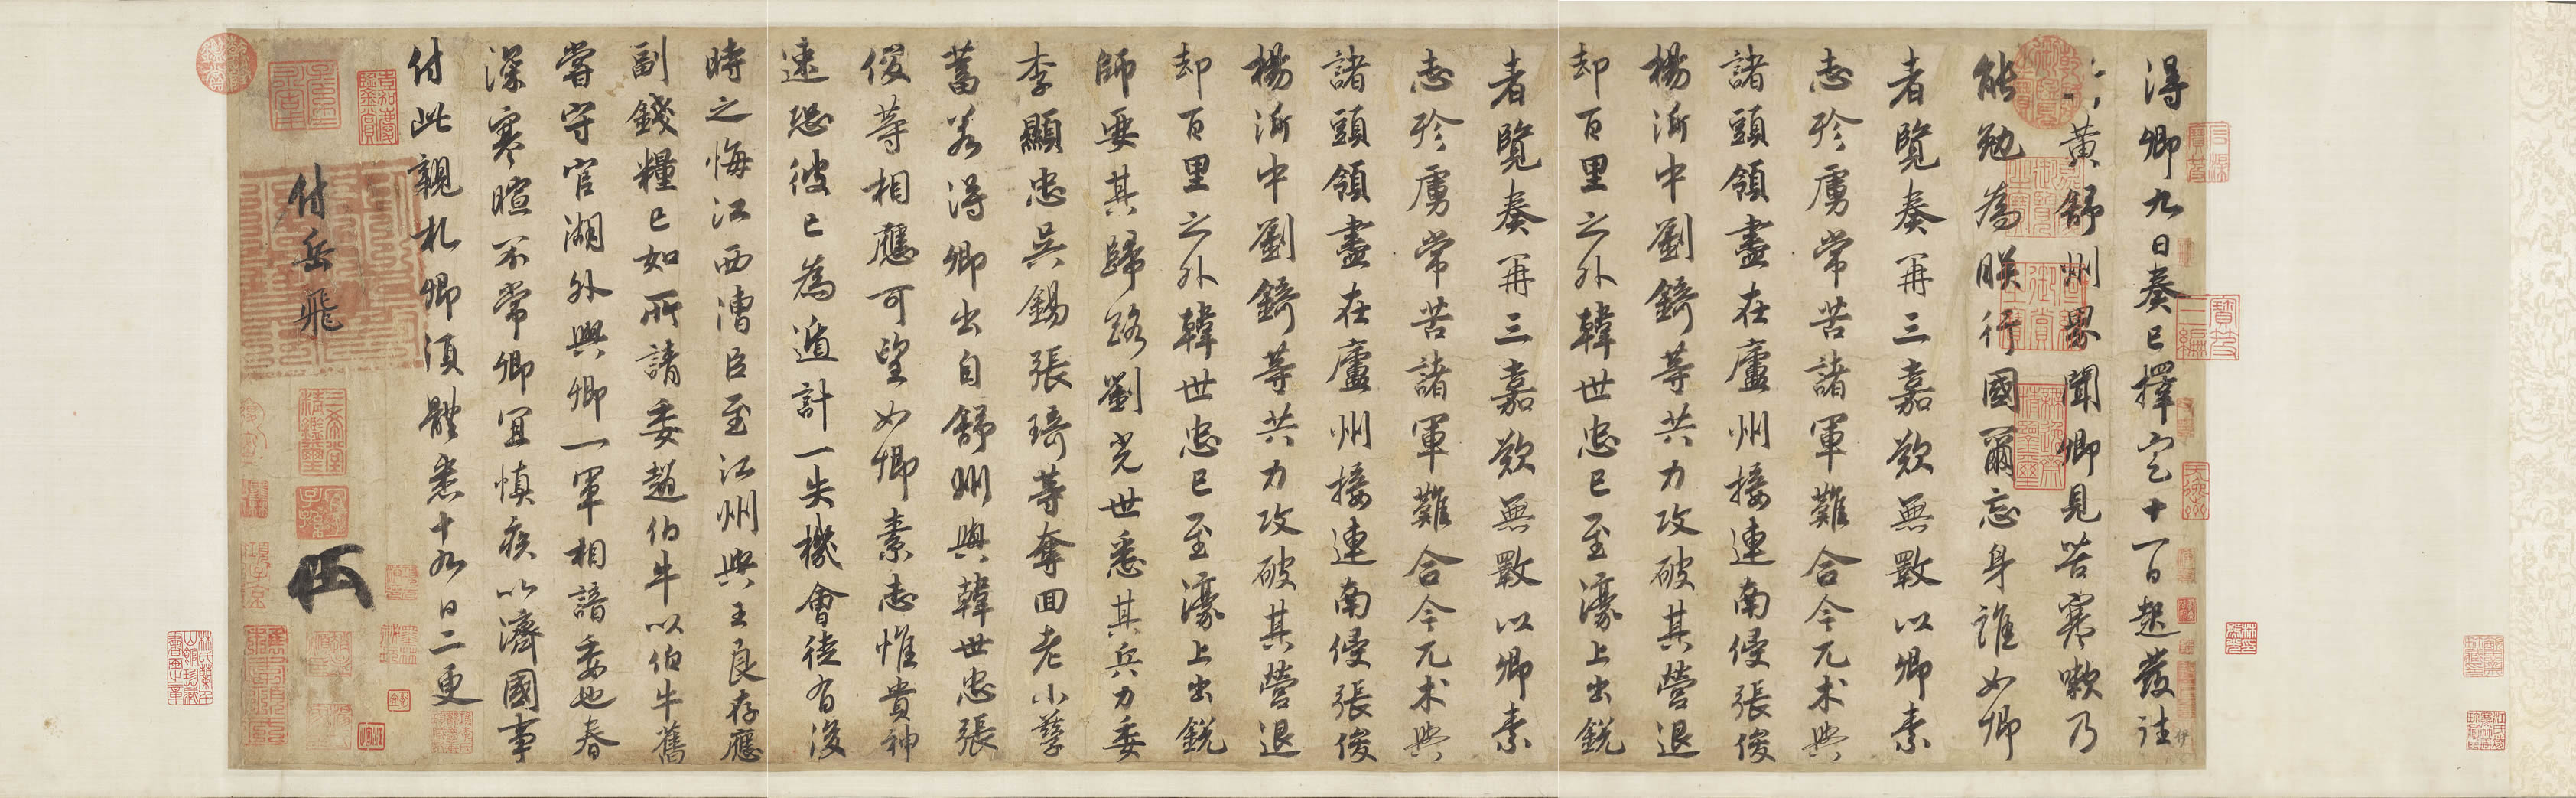 得卿九日奏已擇定十一日起發往
黃舒州界聞卿見苦寒嗽乃
能勉為朕行國爾忘身誰如卿
者覽奏再三嘉歎無斁以卿素
志殄虜常苦諸軍難合今兀朮與
諸頭領盡在廬州接連南侵張俊
楊沂中劉錡等共力攻破其營退
却百里之外韓世忠已至濠上出銳
者覽奏再三嘉歎無斁以卿素
志殄虜常苦諸軍難合今兀朮與
諸頭領盡在廬州接連南侵張俊
楊沂中劉錡等共力攻破其營退
却百里之外韓世忠已至濠上出銳
師要其歸路劉光世悉其兵力委
李顯忠吳錫張琦等奪回老小孳
蓄若得卿出自舒州與韓世忠張
俊等相應可望如卿素志惟貴神
速恐彼已為遁計一失機會徒有後
時之悔江西漕臣至江州與王良存應
副錢糧已如所請委趙伯牛以伯牛舊
嘗守官湖外與卿一軍相諳委也春
深寒暄不常卿宜慎疾以濟國事
付此親札卿須體悉十九日二更
付岳飛